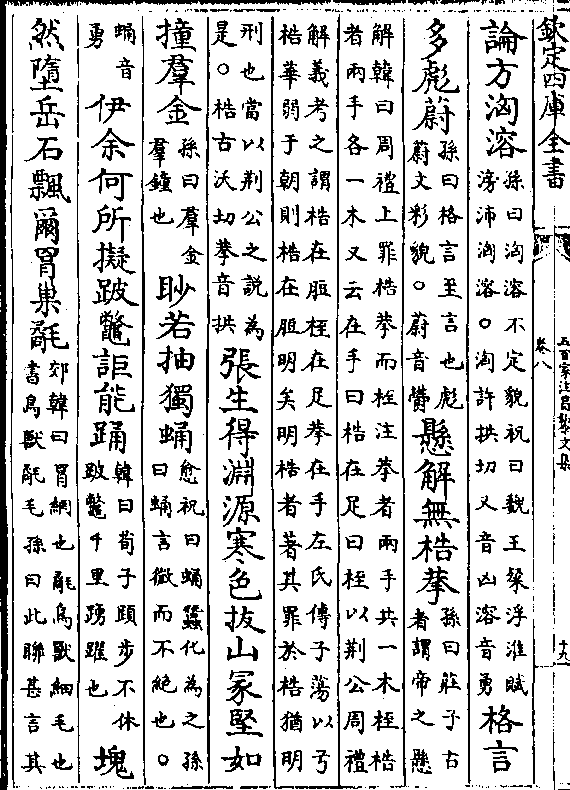 欽定四庫全書
卷八
五百家注昌黎文集
十九
論方洶溶孫曰洶溶不定貌祝曰魏王粲浮淮賦
滂沛洶溶○洶許拱切又音凶溶音勇格言
多彪蔚孫曰格言至言也彪
蔚文彩貌○蔚音欝懸解無梏拲孫曰莊子古
者謂帝之懸
解韓曰周禮上罪梏拲而桎注拲者兩手共一木桎梏
者兩手各一木又云在手曰梏在足曰桎以荆公周禮
解義考之謂梏在脰桎在足拲在手左氏傳子蕩以弓
梏華弱于朝則梏在脰明矣明梏者著其罪於梏猶明
刑也當以荆公之説為
是○梏古沃切拲音拱張生得淵源寒色拔山冢堅如
撞羣金孫曰羣金
羣鐘也眇若抽獨蛹愈祝曰蛹蠶化為之孫
曰蛹言微而不絶也○
蛹音
勇伊余何所擬跛鼈詎能踊韓曰荀子蹞步不休
跛鼈千里踴躍也塊
然墮岳石飄爾罥巢氄郊韓曰罥網也氄鳥獸細毛也
書鳥獸氄毛孫曰此聯甚言其